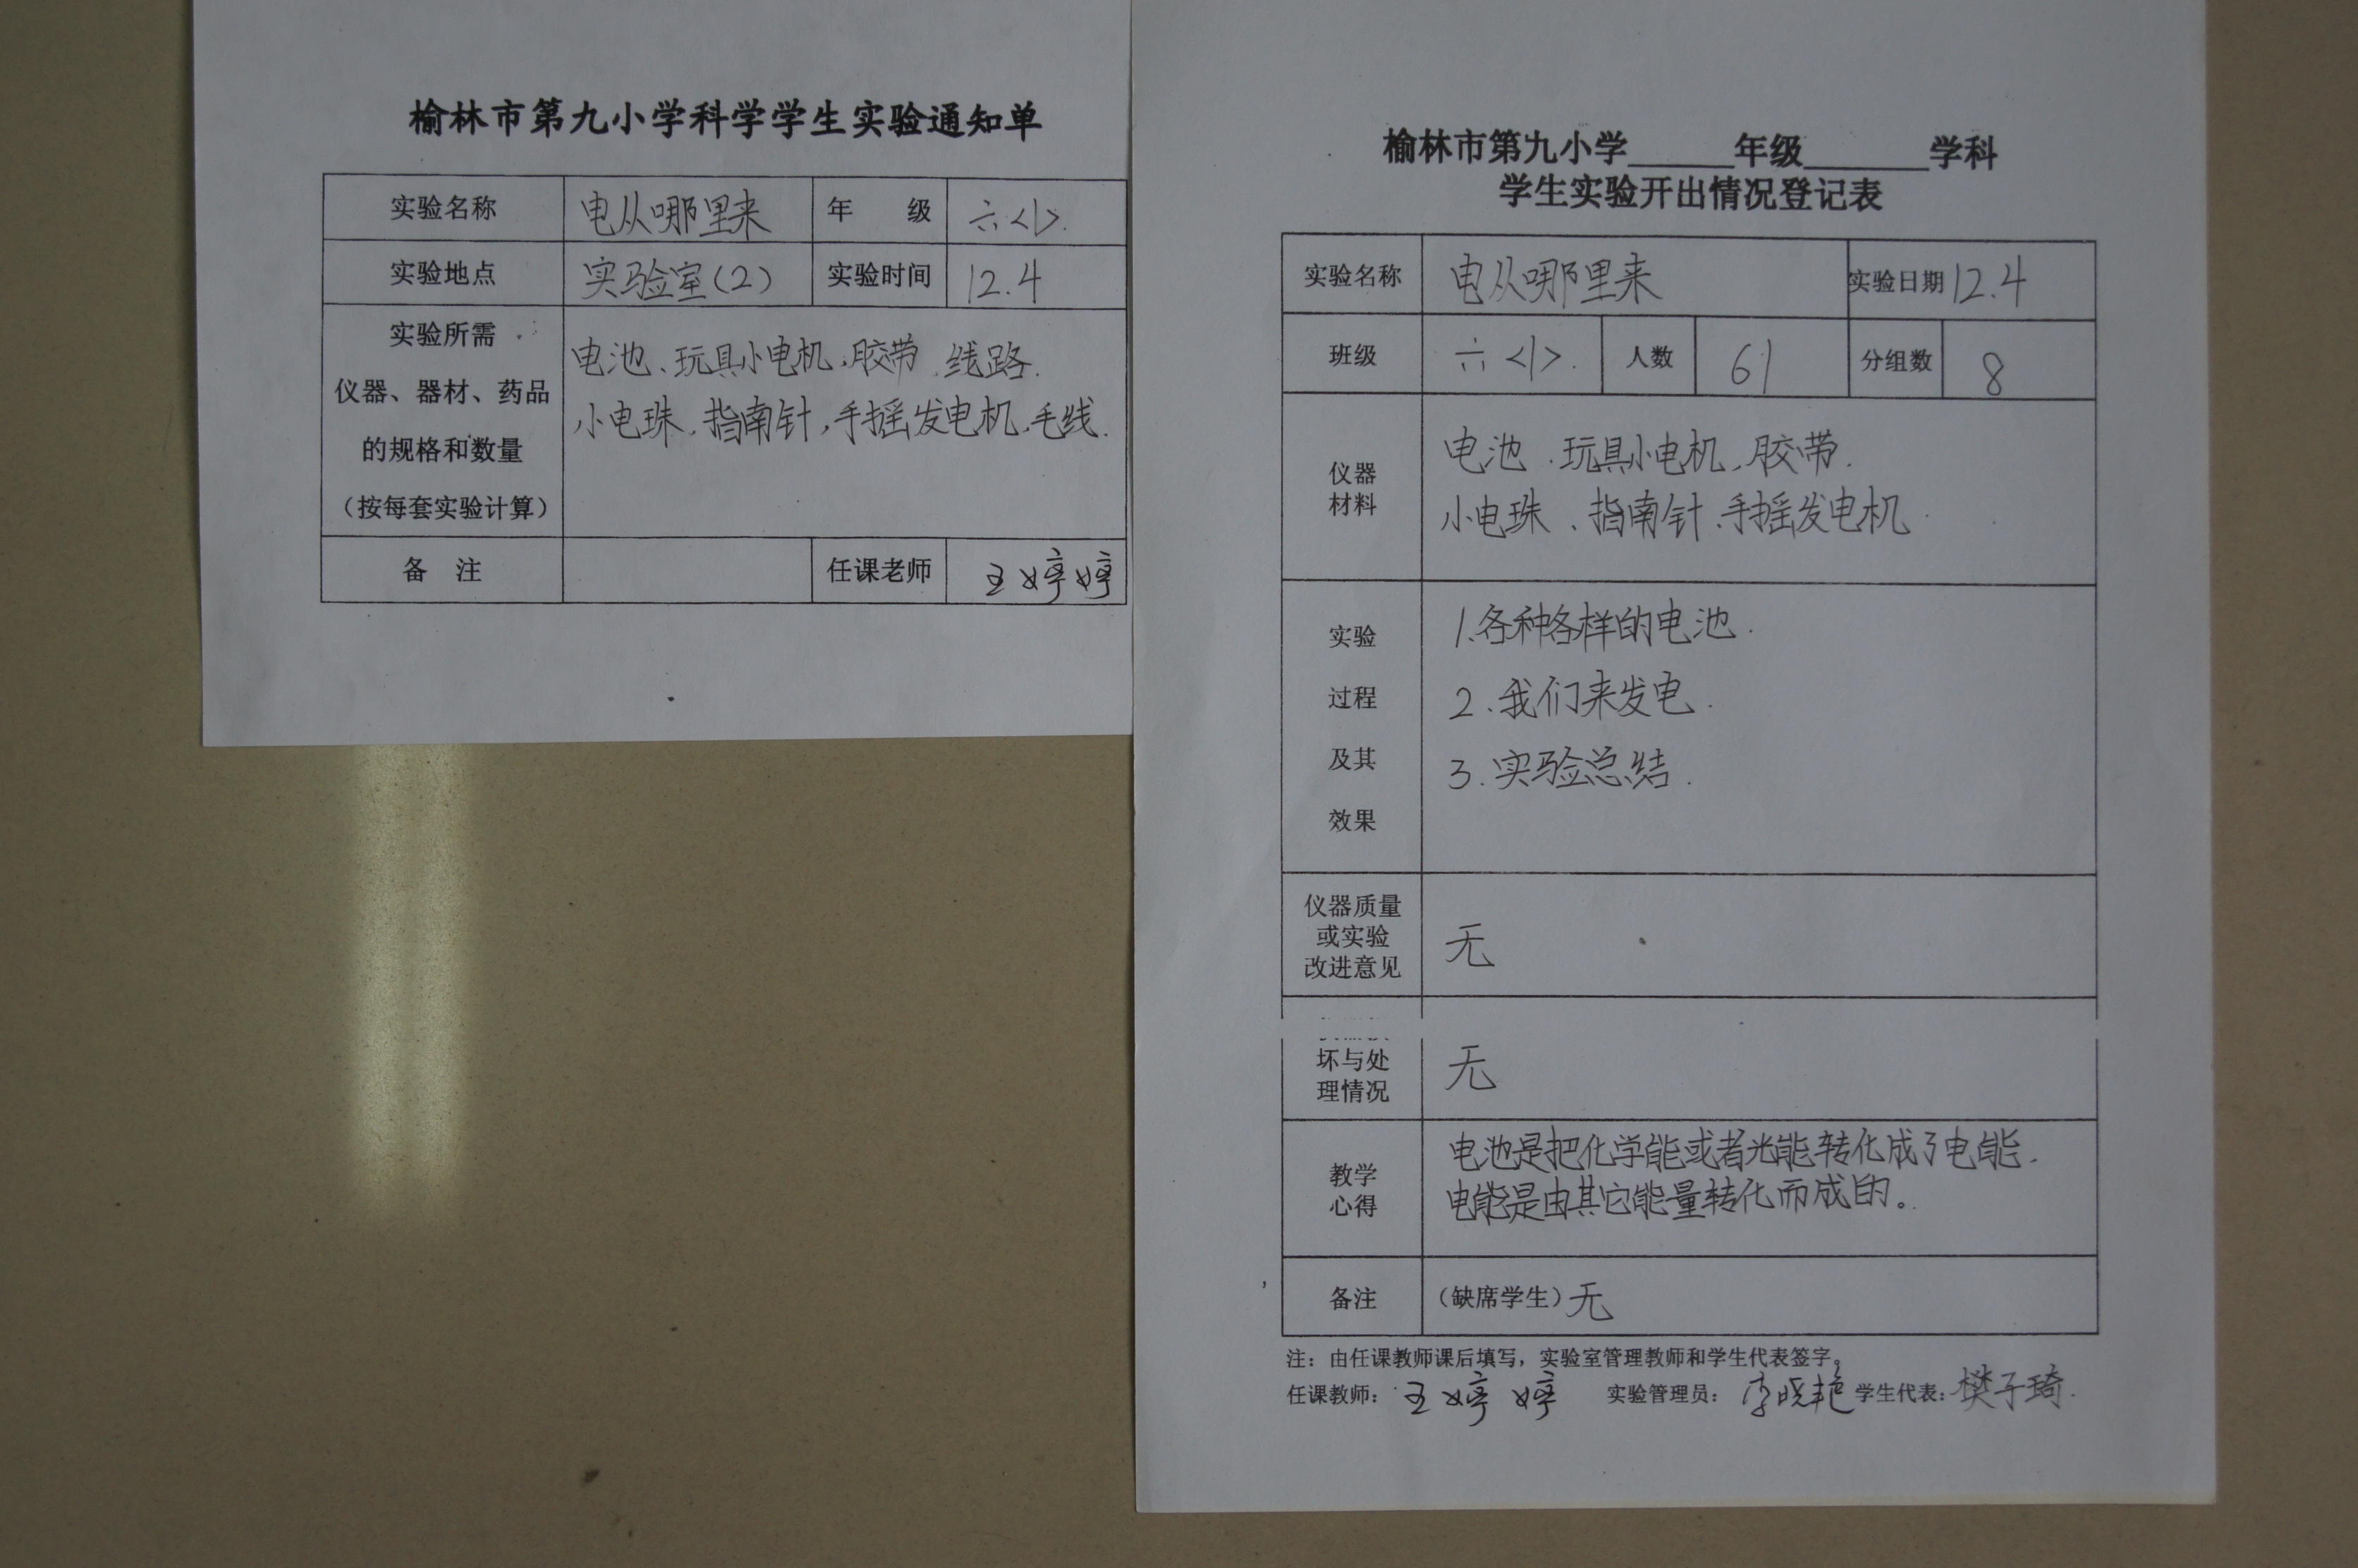 榆林市第九小学科学学生实验通知单
实验名称 电从哪里来 年 级 六<1>.
实验地点 实验室(2) 实验时间 12.4
实验所需
仪器、器材、药品
的规格和数量
(按每套实验计算)
电池、玩具小电机,胶带.线路.
小电珠,指南针,手摇发电机,毛线.
备 注 任课老师 王婷婷
榆林市第九小学______年级_______学科
学生实验开出情况登记表
实验名称 电从哪里来 实验日期 12.4
班级 六<1>. 人数 61 分组数 8
仪器
材料
电池.玩具小电机,胶带.
小电珠、指南针、手摇发电机.
实验
过程
及其
效果
1.各种各样的电池.
2.我们来发电.
3.实验总结.
仪器质量
或实验
改进意见
无
坏与处
理情况
无
教学
心得
电池是把化学能或者光能转化成了电能.
电能是由其它能量转化而成的。
备注 (缺席学生)无
注:由任课教师课后填写,实验室管理教师和学生代表签字。
任课教师:王婷婷 实验管理员:李晓艳 学生代表:樊子琦.